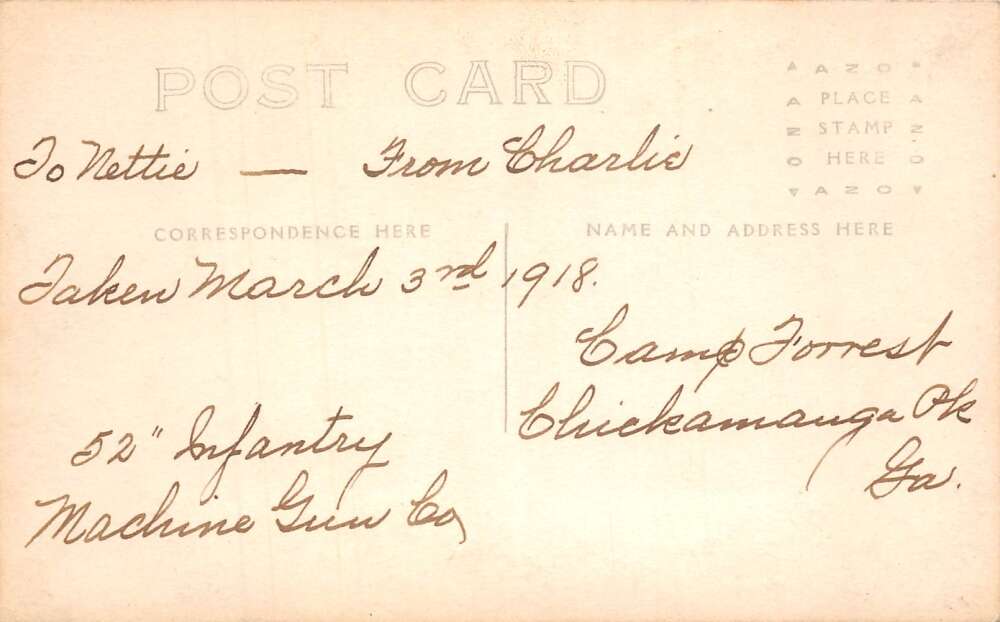 POST CARD
AZO
PLACE
STAMP
HERE
AZO
AZO
AZO
To Nettie — From Charlie
CORRESPONDENCE HERE
NAME AND ADDRESS HERE
Taken March 3rd 1918.
Camp Forrest
Chickamauga Pk
Ga.
52" Infantry
Machine Gun Co,